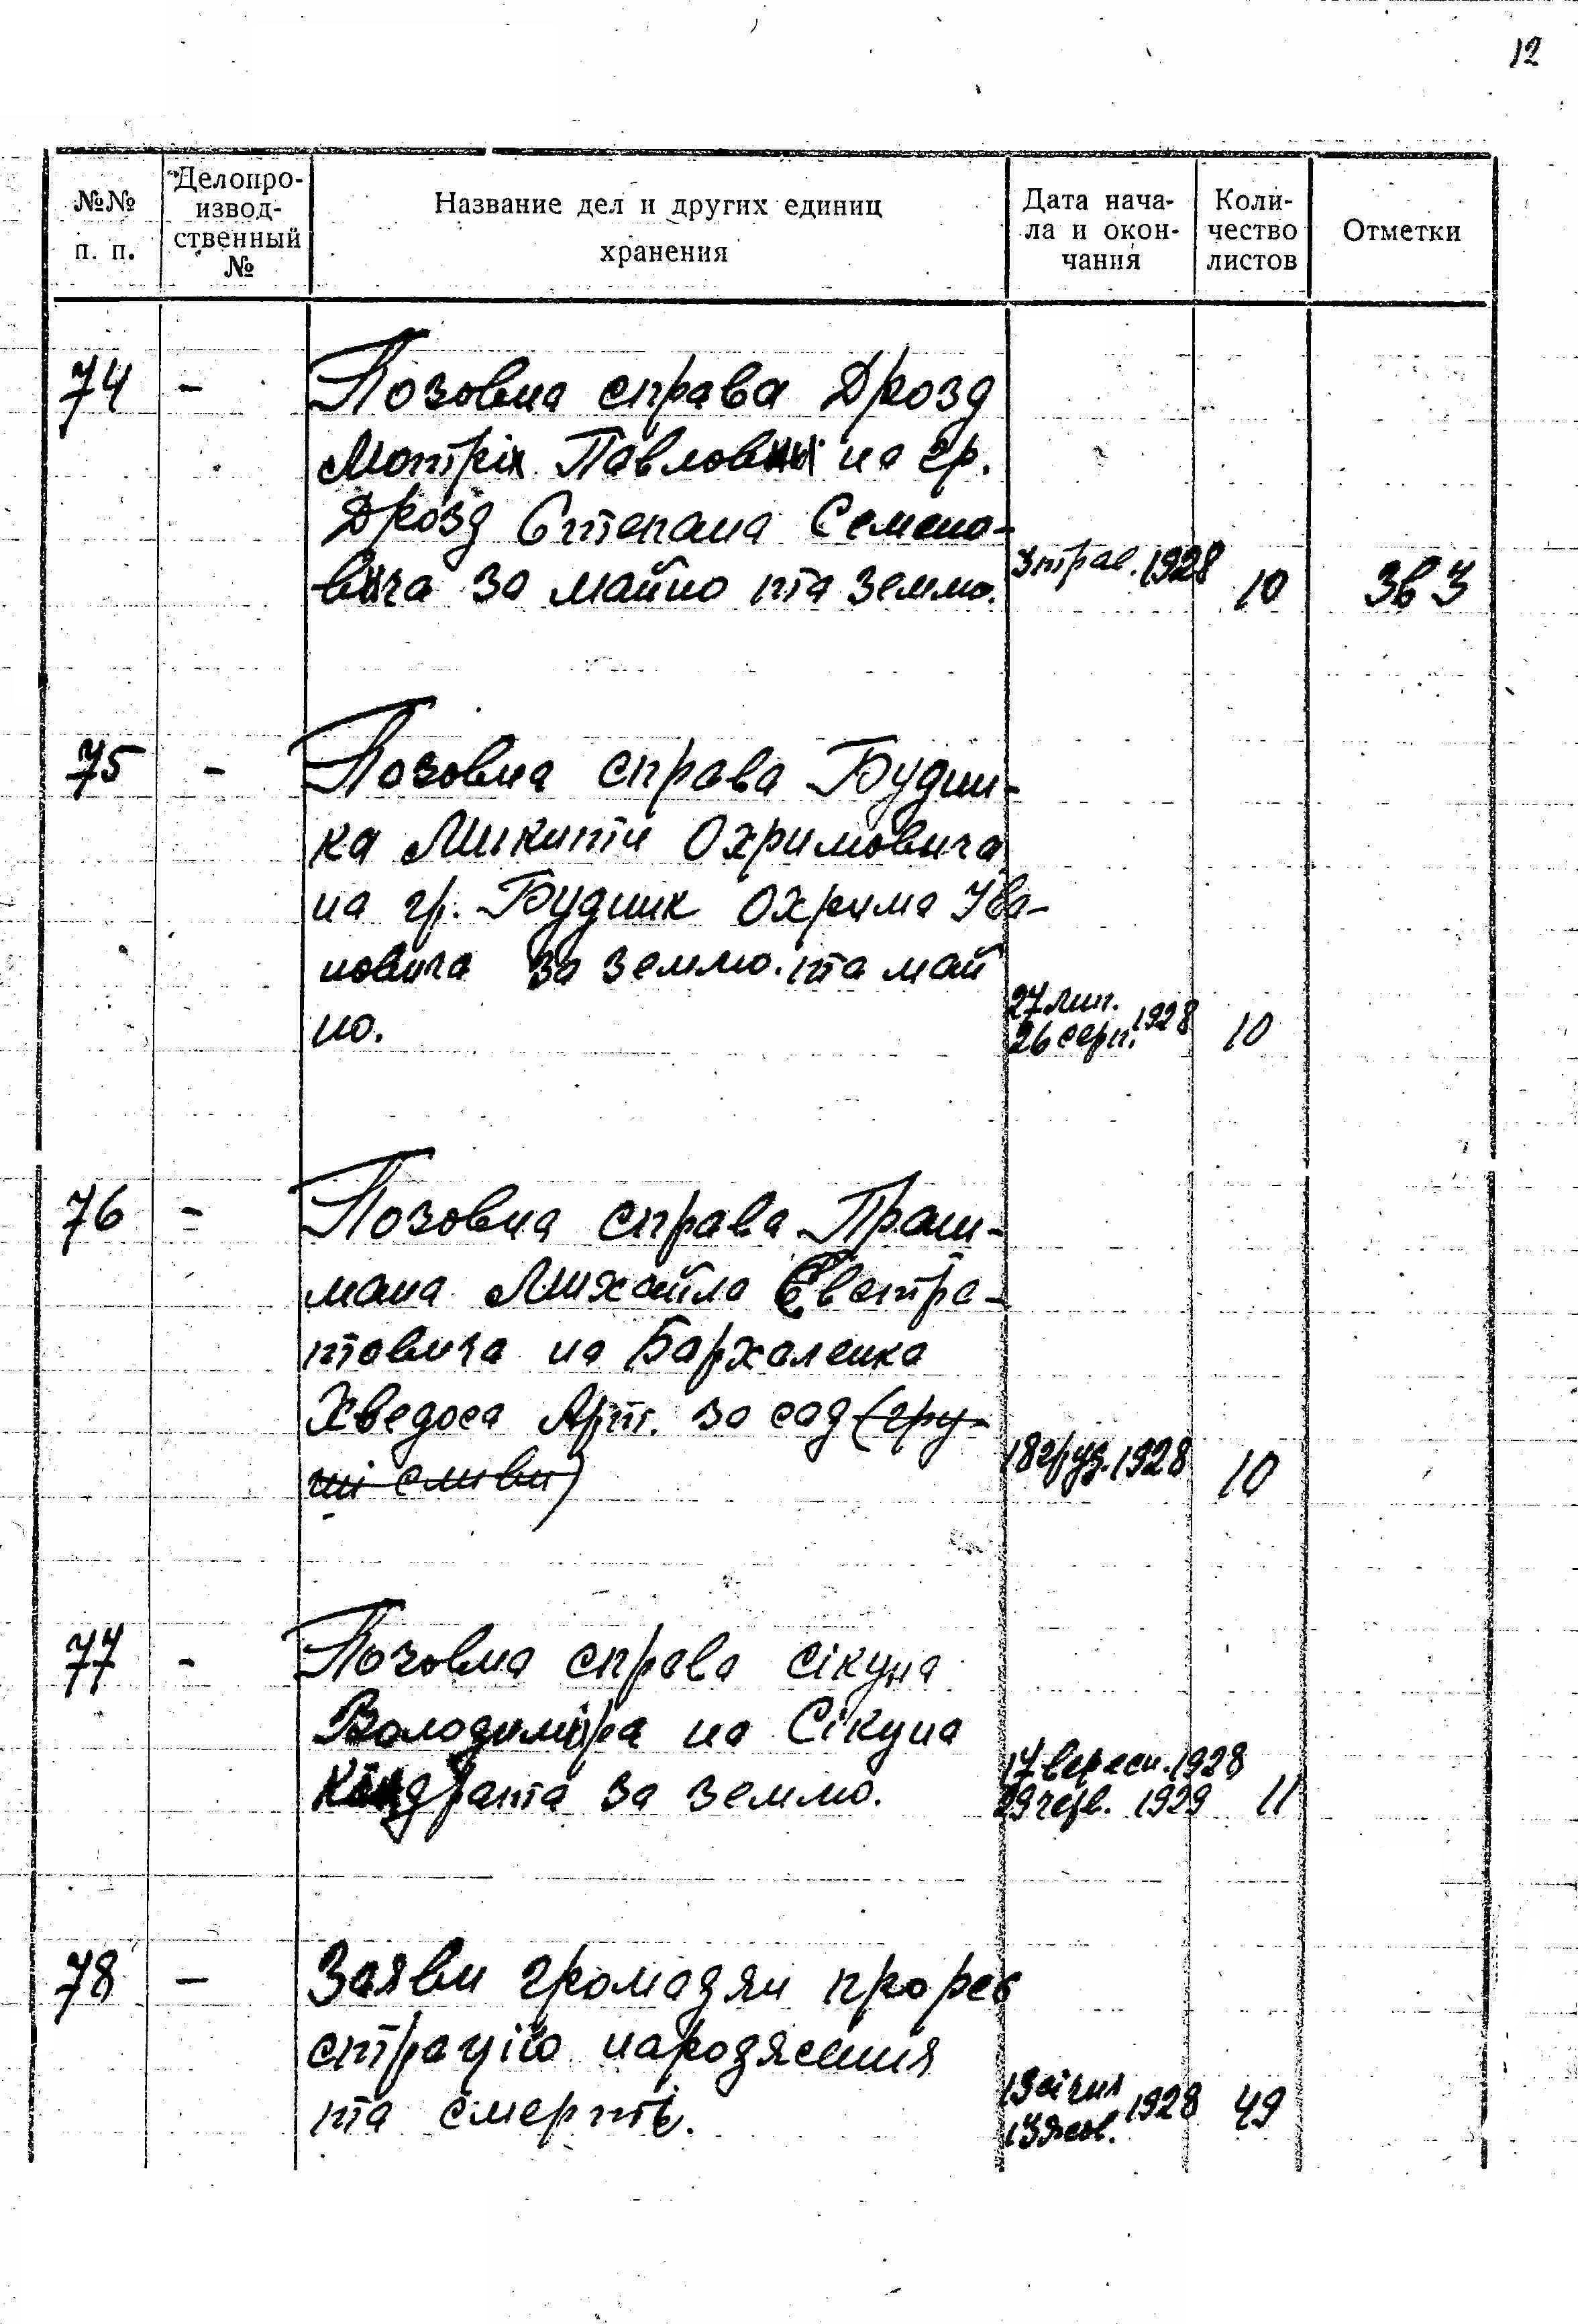 12
№№ п. п.
Делопро-
извод-
ственный
№
Название дел и других единиц
хранения
Дата нача-
ла и окон-
чания
Коли-
чество
листов
Отметки
74 - Позовна справа Дрозд
Мотрі Павловни на гр.
Дрозд Степана Семено-
вича за майно та землю. 3 трав. 1928 10 Зв 3
75 - Позовна справа Будни-
ка Микити Охримовича
на гр. Будник Охрима Іва-
новича за землю та май
но. 27 лип.
26 серп. 1928 10
76 - Позовна справа Праш-
мана Михайла Євстра-
товича на Бархаленка
Хведоса Арт. за сад (гру-
ші сливи) 18 груд. 1928 10
77 - Позовна справа Сікуна
Володиміра на Сікуна
Кіндрата за землю. 17 вересн. 1928
29 черв. 1929 11
78 - Заяви громадян про реє
страцію народження
та смерть. 13 січня
13 жов. 1928 49